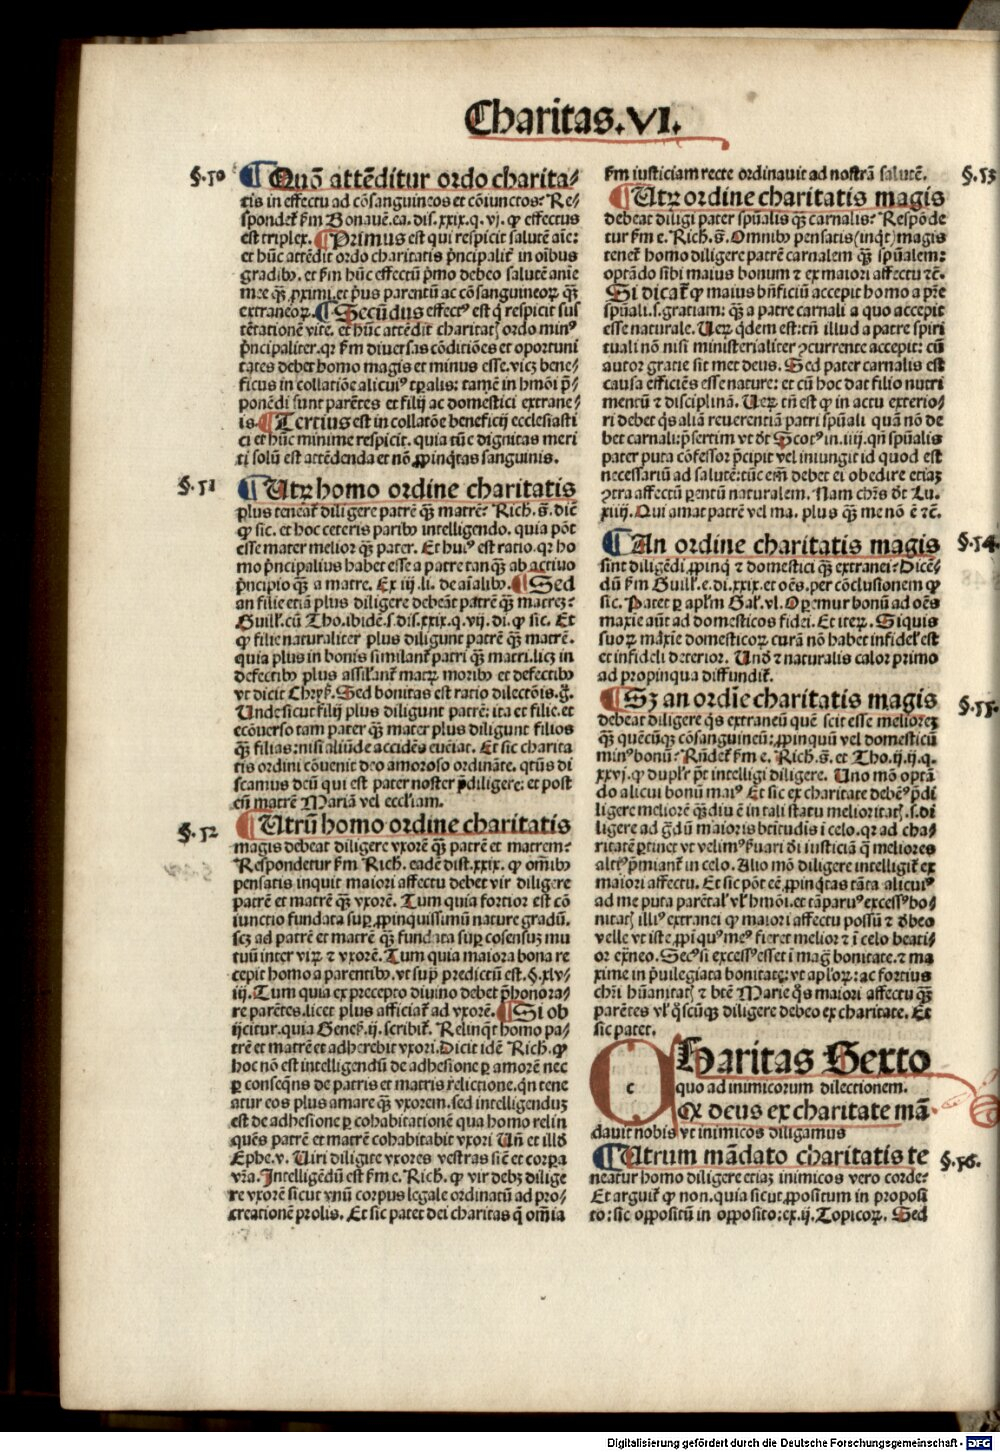 Charitas.VI.
§.50
Quō attēditur ordo charita-
tis in effectu ad cōsanguineos et cōiunctos? Re-
spondet̄ s̄m Bonauē.ea.dis.xxix.q.vj. ꝙ effectus
est triplex. Primus est qui respicit salutē aīe:
et hūc attēdit ordo charitatis p̄ncipalit̄ in oībus
gradibꝰ. et s̄m hūc effectū p̄mo debeo salutē anīe
mee q̄ꝫ ꝓximi.et p̄us parentū ac cōsanguineoꝝ q̄ꝫ
extraneoꝝ. Secūdus effectꝰ est q̄ respicit sus
tētationē vite. et hūc attēdit charitatꝭ ordo minꝰ
p̄ncipaliter.qꝛ s̄m diuersas cōditiōes et oportuni
tates debet homo magis et minus esse.vicꝫ bene-
ficus in collatiōe alicuiꝰ tp̄alis: tamē in hmōi p̄-
ponēdi sunt parētes et filij ac domestici extrane-
is. Tertius est in collatōe beneficij ecclesiasti
ci et hūc minime respicit. quia tūc dignitas meri
ti solū est attēdenda et nō ꝓpinq̄tas sanguinis.
§.51
Utꝝ homo ordine charitatis
plus teneat̄ diligere patrē q̄ꝫ matrē? Rich. s̄. dīc
ꝙ sic. et hoc ceteris paribꝰ intelligendo. quia pōt
esse mater melior q̄ꝫ pater. Et huiꝰ est ratio.qꝛ ho
mo p̄ncipalius habet esse a patre tanq̄ꝫ ab actiuo
p̄ncipio q̄ꝫ a matre. Ex iij.li. de aīalibꝰ. Sed
an filie etiā plus diligere debeāt patrē q̄ꝫ matreꝫ?
Guill̄. cū Tho.ibidē.s.dis.xxix.q.vij.di.ꝙ sic. Et
ꝙ filie naturaliter plus diligunt patrē q̄ꝫ matrē.
quia plus in bonis similant̄ patri q̄ꝫ matri.licꝫ in
defectibꝰ plus assilant̄ matꝝ moribꝰ et defectibꝰ
vt dicit Chrys̄. Sed bonitas est ratio dilectōis.ḡ.
Unde sicut filij plus diligunt patrē: ita et filie.et
ecōuerso tam pater q̄ꝫ mater plus diligunt filios
q̄ꝫ filias:nisi aliūde accidēs eueīat. Et sic charita
tis ordini cōuenit deo amoroso ordināte. qtūs di
scamus deū qui est pater noster p̄diligere: et post
eū matrē Mariā vel eccl̄iam.
§.52
Utrū homo ordine charitatis
magis debeat diligere vxorē q̄ꝫ patrē et matrem?
Respondetur s̄m Rich. eadē dist.xxix. ꝙ om̄ibꝰ
pensatis inquit maiori affectu debet vir diligere
patrē et matrē q̄ꝫ vxorē. Tum quia fortior est cō
iunctio fundata suꝑ ꝓpinquissimū nature gradū.
scꝫ ad patrē et matrē q̄ꝫ fundata suꝑ cosensuꝫ mu
tuū inter viꝝ ⁊ vxorē. Tum quia maiora bona re
cepit homo a parentibꝰ. vt sup̄ predictū est. §.xlv-
iij. Tum quia ex precepto diuino debet p̄honora-
re parētes.licet plus afficiat̄ ad vxorē. Si ob
ijcitur.quia Genes̄.ij.scribit̄. Relinq̄t homo pa-
trē et matrē et adherebit vxori. Dicit idē Rich. ꝙ
hoc nō est intelligendū de adhesiōe ꝑ amorē nec
ꝑ conseq̄ns de patris et matris r̄elictione.qn tene
atur eos plus amare q̄ꝫ vxorem.sed intelligenduꝫ
est de adhesiōe ꝑ cohabitationē qua homo relin
quēs patrē et matrē cohabitabit vxori Uñ et illḋ
Ephe.v. Uiri diligite vxores vestras sic̄ et corꝑa
vr̄a. Intelligēdū est s̄m e. Rich. ꝙ vir debꝫ dilige
re vxorē sicut vnū corpus legale ordinatū ad pro-
creationē prolis. Et sic patet dei charitas q̄ om̄ia
s̄m iusticiam recte ordinauit ad nostrā salutē.
§.53
Utꝝ ordine charitatis magis
debeat diligi pater sp̄ualis q̄ꝫ carnalis? Respōde
tur s̄m e. Rich. s̄. Omnibꝰ pensatis (inq̄t) magis
tenet̄ homo diligere patrē carnalem q̄ꝫ sp̄ualem:
optādo sibi maius bonum ⁊ ex maiori affectu ⁊c̄.
Si dicat̄ ꝙ maius bn̄ficiū accepit homo a p̄re
sp̄uali.s.gratiam: q̄ꝫ a patre carnali a quo accepit
esse naturale. Ueꝝ q̇dem est: tn̄ illud a patre spiri
tuali nō nisi ministerialiter ꝯcurrente accepit: cū
autor gratie sit met deus. Sed pater carnalis est
causa efficiēs esse nature: et cū hoc dat filio nutri
mentū ⁊ disciplinā. Ueꝝ tn̄ est ꝙ in actu exterio-
ri debet q̇s aliā reuerentiā patri sp̄uali quā nō de
bet carnali:p̄sertim vt ḋt Scotꝰ in.iiij.qn̄ sp̄ualis
pater puta cōfessor p̄cipit vel iniungit id quod est
necessariū ad salutē:tūc em̄ debet ei obedire etiaꝫ
ꝯtra affectū ꝑentū naturalem. Nam chr̄s ḋt Lu.
xiiij. Qui amat patrē vel ma. plus q̄ꝫ me nō ē ⁊c̄.
§.54.
An ordine charitatis magis
sint diligēdi ꝓpinq̇ ⁊ domestici q̄ꝫ extranei? Dicē-
dū s̄m Guill̄.e.di.xxix.et oēs.per cōclusionem ꝙ
sic. Patet ꝑ apl̄m Gal̄.vI. Oꝑemur bonū ad oēs
maxīe aūt ad domesticos fidei. Et iteꝝ. Siquis
suoꝝ māxīe domesticoꝝ curā nō habet infidel̄ est
et infideli deterior. Unḋ ⁊ naturalis calor primo
ad propinqua diffundit̄.
§.55.
Sꝫ an ordīe charitatis magis
debeat diligere q̇s extraneū quē scit esse melioreꝫ
q̄ꝫ quēcūqꝫ cōsanguineū:ꝓpinquū vel domesticū
minꝰ bonū? Rn̄det̄ s̄m e. Rich. s̄. et Tho.ij.ij.q.
xxvj.ꝙ dupl̄r p̄t intelligi diligere. Uno mō optā
do alicui bonū maiꝰ Et sic ex charitate debēꝰ p̄di
ligere meliorē q̄ꝫdiu ē in tali statu melioritatꝭ.s.di
ligere ad ḡdū maioris btītudis ī celo.qꝛ ad cha-
ritatē ꝑtinet vt velimꝰ ẜuari di iusticiā q̄ meliores
altiꝰ p̄miant̄ in celo. Alio mō diligere intelligit̄ ex
maiori affectu. Et sic pōt eē ꝓpinq̇tas tāta alicuiꝰ
ad me puta parētal̄ vl̄ hmōi.et tā paruꝰ excessꝰ bo-
nitatꝭ illiꝰ extranei ꝙ maiori affectu possū ⁊ ḋbeo
velle vt iste ꝓpīquꝰ meꝰ fieret melior ⁊ ī celo beati-
or ex̄neo. Secꝰ si excessꝰ esset ī maḡ bonitate.⁊ ma
xime in p̄uilegiata bonitate:vt apl̄oꝝ: ac fortius
chr̄i hūanitatꝭ ⁊ bt̄ē Marie q̇s maiori affectu q̄ꝫ
parētes vl̄ q̇scūqꝫ diligere debeo ex charitate. Et
sic patet.
c
Charitas Sexto
quo ad inimicorum dilectionem.
Qꝛ deus ex charitate mā-
dauit nobis vt inimicos diligamus
§.56.
Utrum mādato charitatis te
neatur homo diligere etiaꝫ inimicos vero corde?
Et arguit̄ ꝙ non.quia sicut ꝓpositum in proposi
to:sic oꝓpositū in oꝓposito:ex.ij. Topicoꝝ. Sed
Digitalisierung gefördert durch die Deutsche Forschungsgemeinschaft - DFG